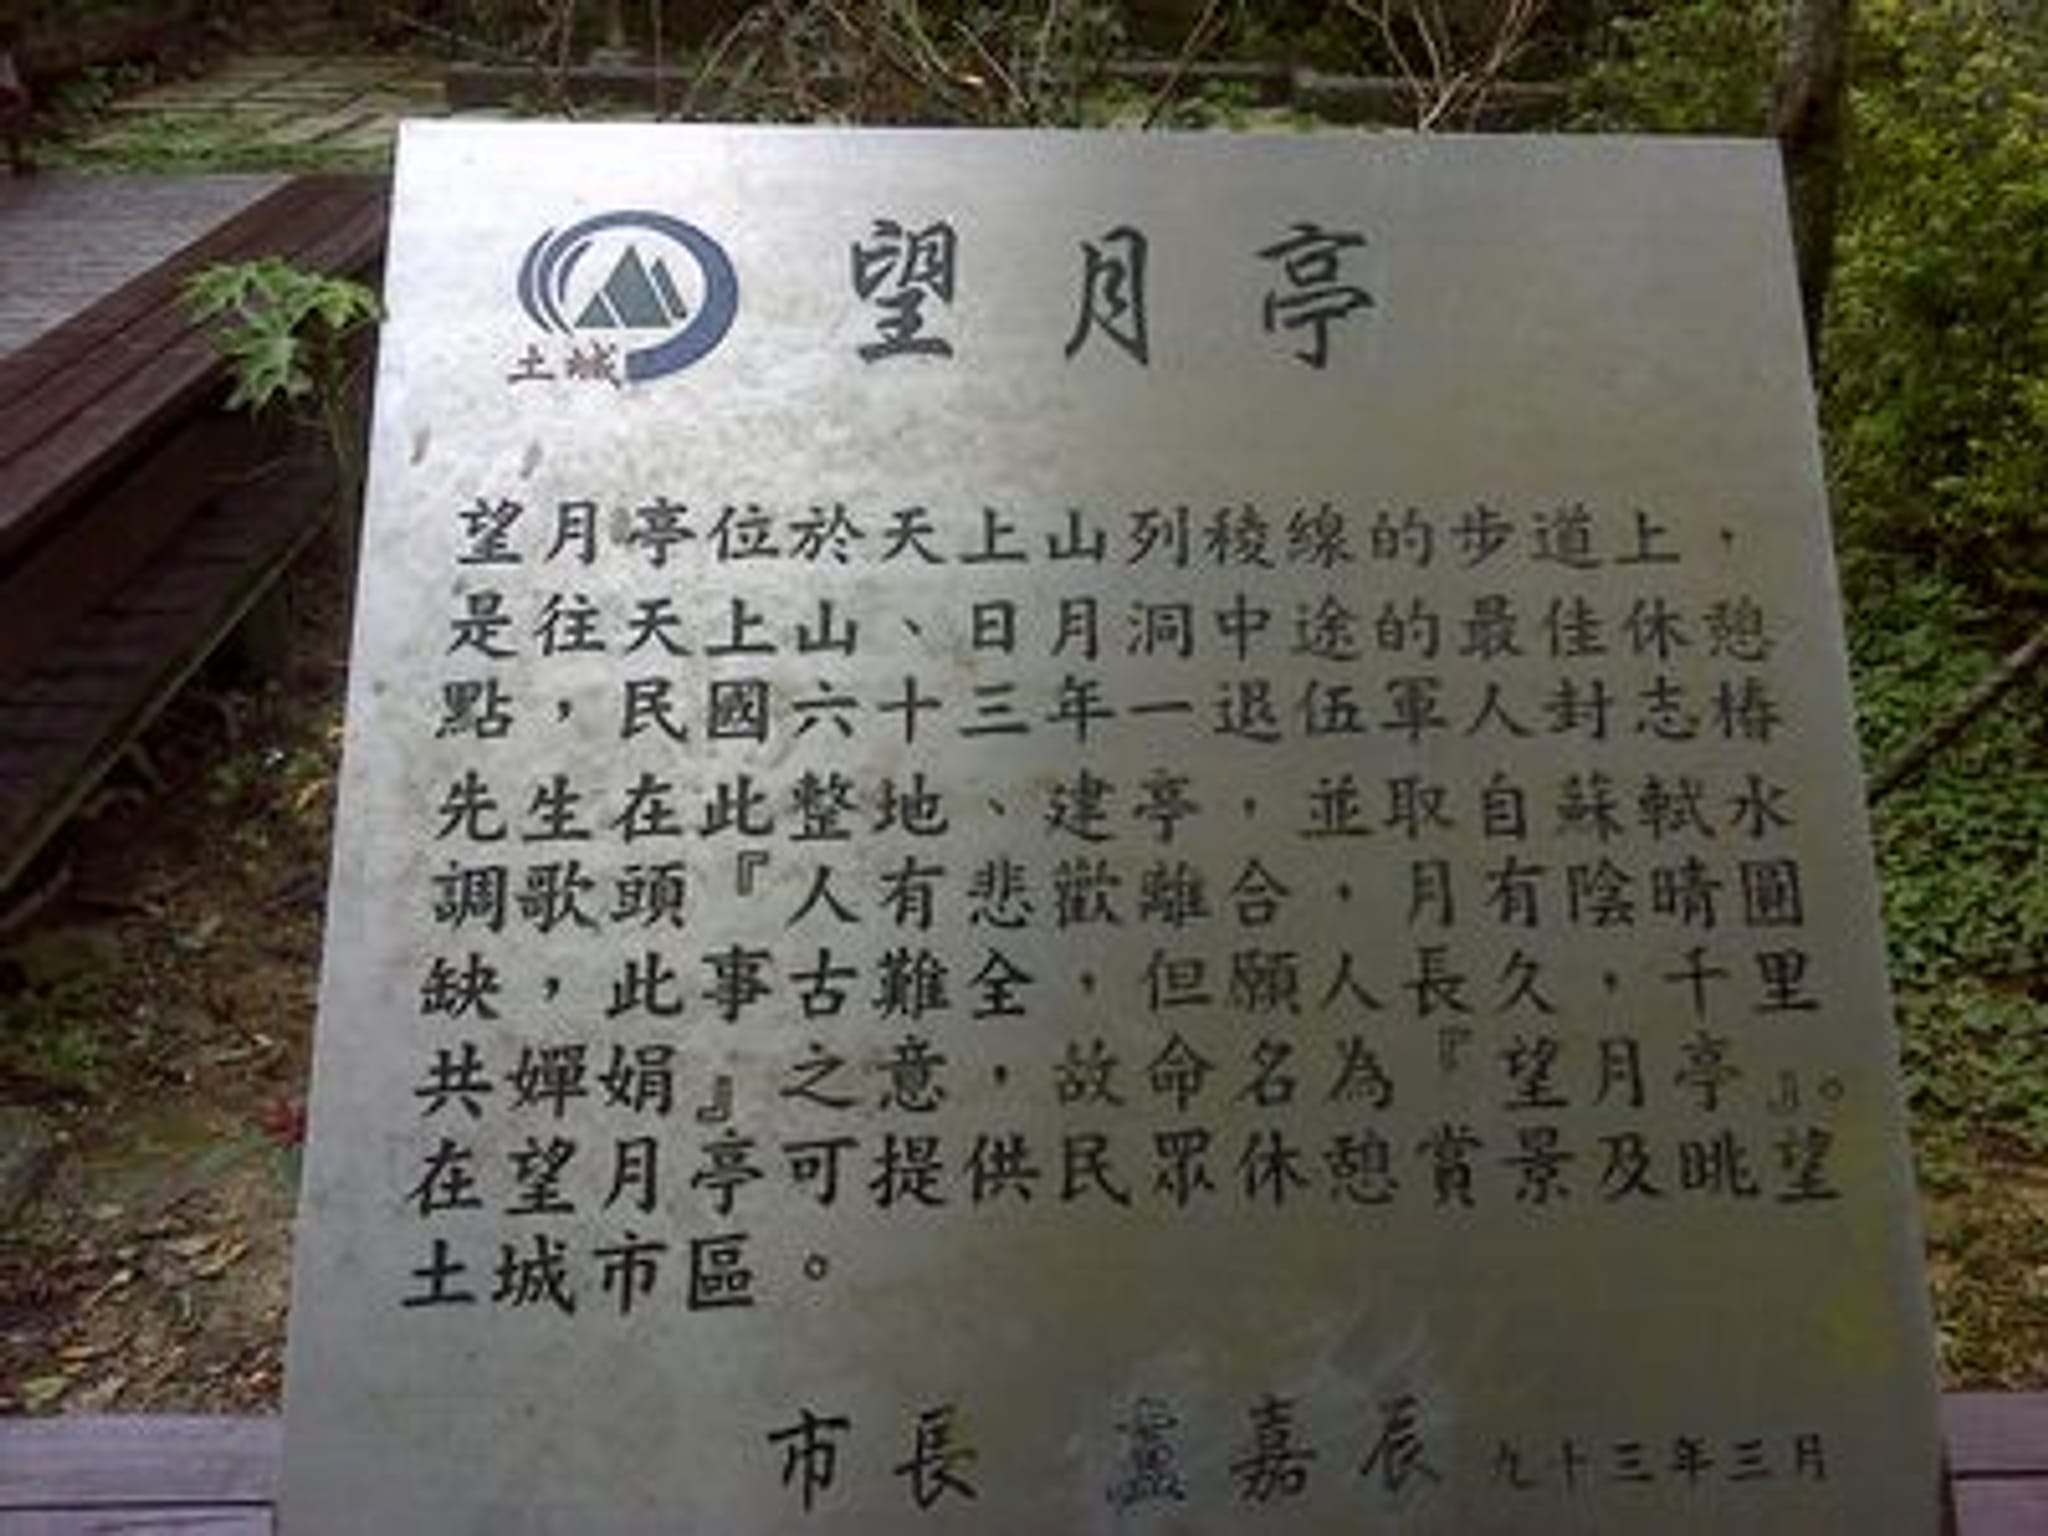 土城
望月亭
望月亭位於天上山列稜線的步道上，
是往天上山、日月洞中途的最佳休憩
點，民國六十三年一退伍軍人封志梅
先生在此整地、建亭，並取自蘇軾水
調歌頭『人有悲歡離合，月有陰晴圓
缺，此事古難全，但願人長久，千里
共嬋娟』之意，故命名為『望月亭』。
在望月亭可提供民眾休憩賞景及眺望
土城市區。
市長 盧嘉辰 九十三年三月